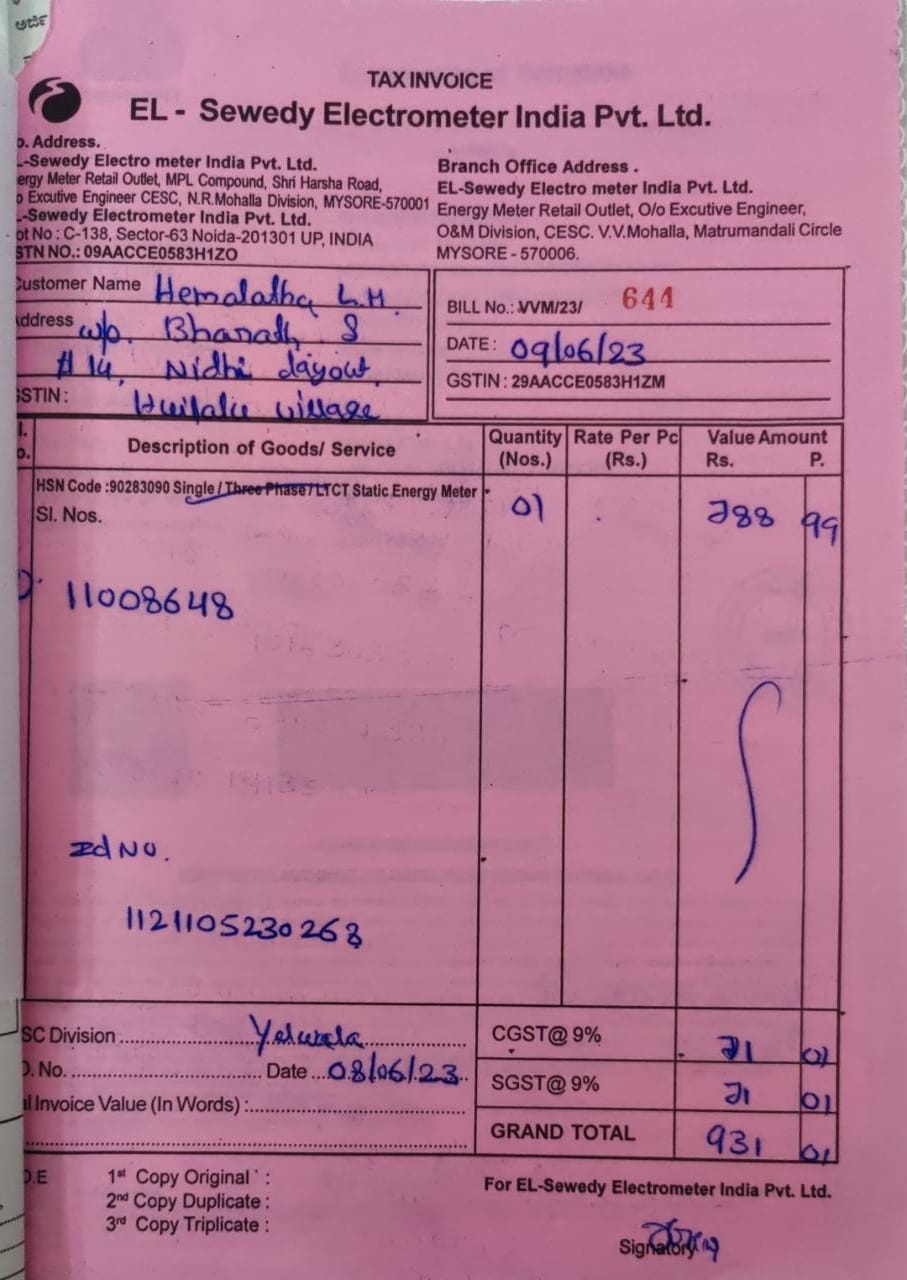 ಅರ್ಜಿ
TAX INVOICE
EL - Sewedy Electrometer India Pvt. Ltd.
o. Address.
L-Sewedy Electro meter India Pvt. Ltd.
ergy Meter Retail Outlet, MPL Compound, Shri Harsha Road,
o Excutive Engineer CESC, N.R.Mohalla Division, MYSORE-570001
L-Sewedy Electrometer India Pvt. Ltd.
ot No : C-138, Sector-63 Noida-201301 UP, INDIA
STN NO.: 09AACCE0583H1ZO
Branch Office Address .
EL-Sewedy Electro meter India Pvt. Ltd.
Energy Meter Retail Outlet, O/o Excutive Engineer,
O&M Division, CESC. V.V.Mohalla, Matrumandali Circle
MYSORE - 570006.
Customer Name Hemalatha L.M.
Address w/o. Bharath S
# 14, Nidhi Layout,
GSTIN : village
BILL No.: VVM/23/ 644
DATE : 09/06/23
GSTIN : 29AACCE0583H1ZM
l. Description of Goods/ Service Quantity Rate Per Pc Value Amount
o. (Nos.) (Rs.) Rs. P.
HSN Code :90283090 Single / Three Phase / LTCT Static Energy Meter
Sl. Nos. 01 788 99
11008648
Id No.
1121105230268
SC Division Yelwala CGST@ 9% 71 01
D. No. Date 08/06/23 SGST@ 9% 71 01
al Invoice Value (In Words) :
GRAND TOTAL 931 01
D.E 1st Copy Original :
2nd Copy Duplicate :
3rd Copy Triplicate :
For EL-Sewedy Electrometer India Pvt. Ltd.
Signatory